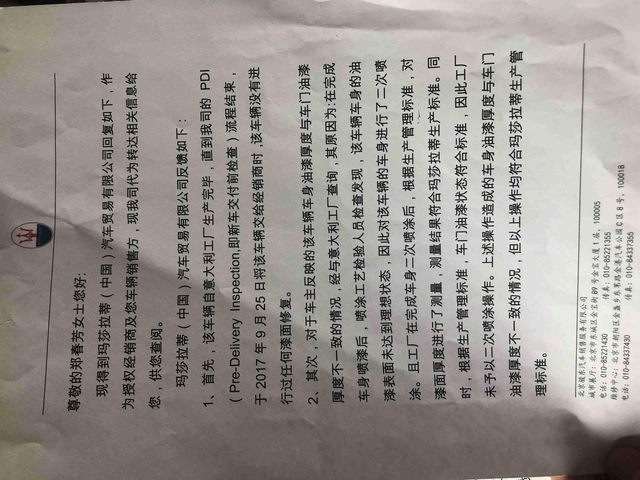 尊敬的郑香芳女士您好:
现得到玛莎拉蒂（中国）汽车贸易有限公司回复如下，作
为授权经销商及您车辆销售方，现我司代为转达相关信息给
您，供您查阅。
玛莎拉蒂（中国）汽车贸易有限公司反馈如下:
1、首先，该车辆自意大利工厂生产完毕，直到我司的 PDI
（Pre-Delivery Inspection,即新车交付前检查）流程结束，
于 2017 年 9 月 25 日将该车辆交给经销商时,该车辆没有进
行过任何漆面修复。
2、其次，对于车主反映的该车辆车身油漆厚度与车门油漆
厚度不一致的情况，经与意大利工厂查询，其原因为:在完成
车身喷漆后，喷涂工艺检验人员检查发现，该车辆车身的油
漆表面未达到理想状态，因此对该车辆的车身进行了二次喷
涂。且工厂在完成车身二次喷涂后，根据生产管理标准，对
漆面厚度进行了测量，测量结果符合玛莎拉蒂生产标准。同
时，根据生产管理标准，车门油漆状态符合标准，因此工厂
未予以二次喷涂操作。上述操作造成的车身油漆厚度与车门
油漆厚度不一致的情况，但以上操作均符合玛莎拉蒂生产管
理标准。
北京骏东汽车销售服务有限公司
城市展厅: 北京市东城区金宝街 89 号金宝大厦 1 层, 100005
电话: 010-85221430 传真: 010-85221355
维修中心: 北京市朝阳区金盏乡东苇路金港汽车公园 C 区 8 号, 100018
电话: 010-84337430 传真: 010-84337355